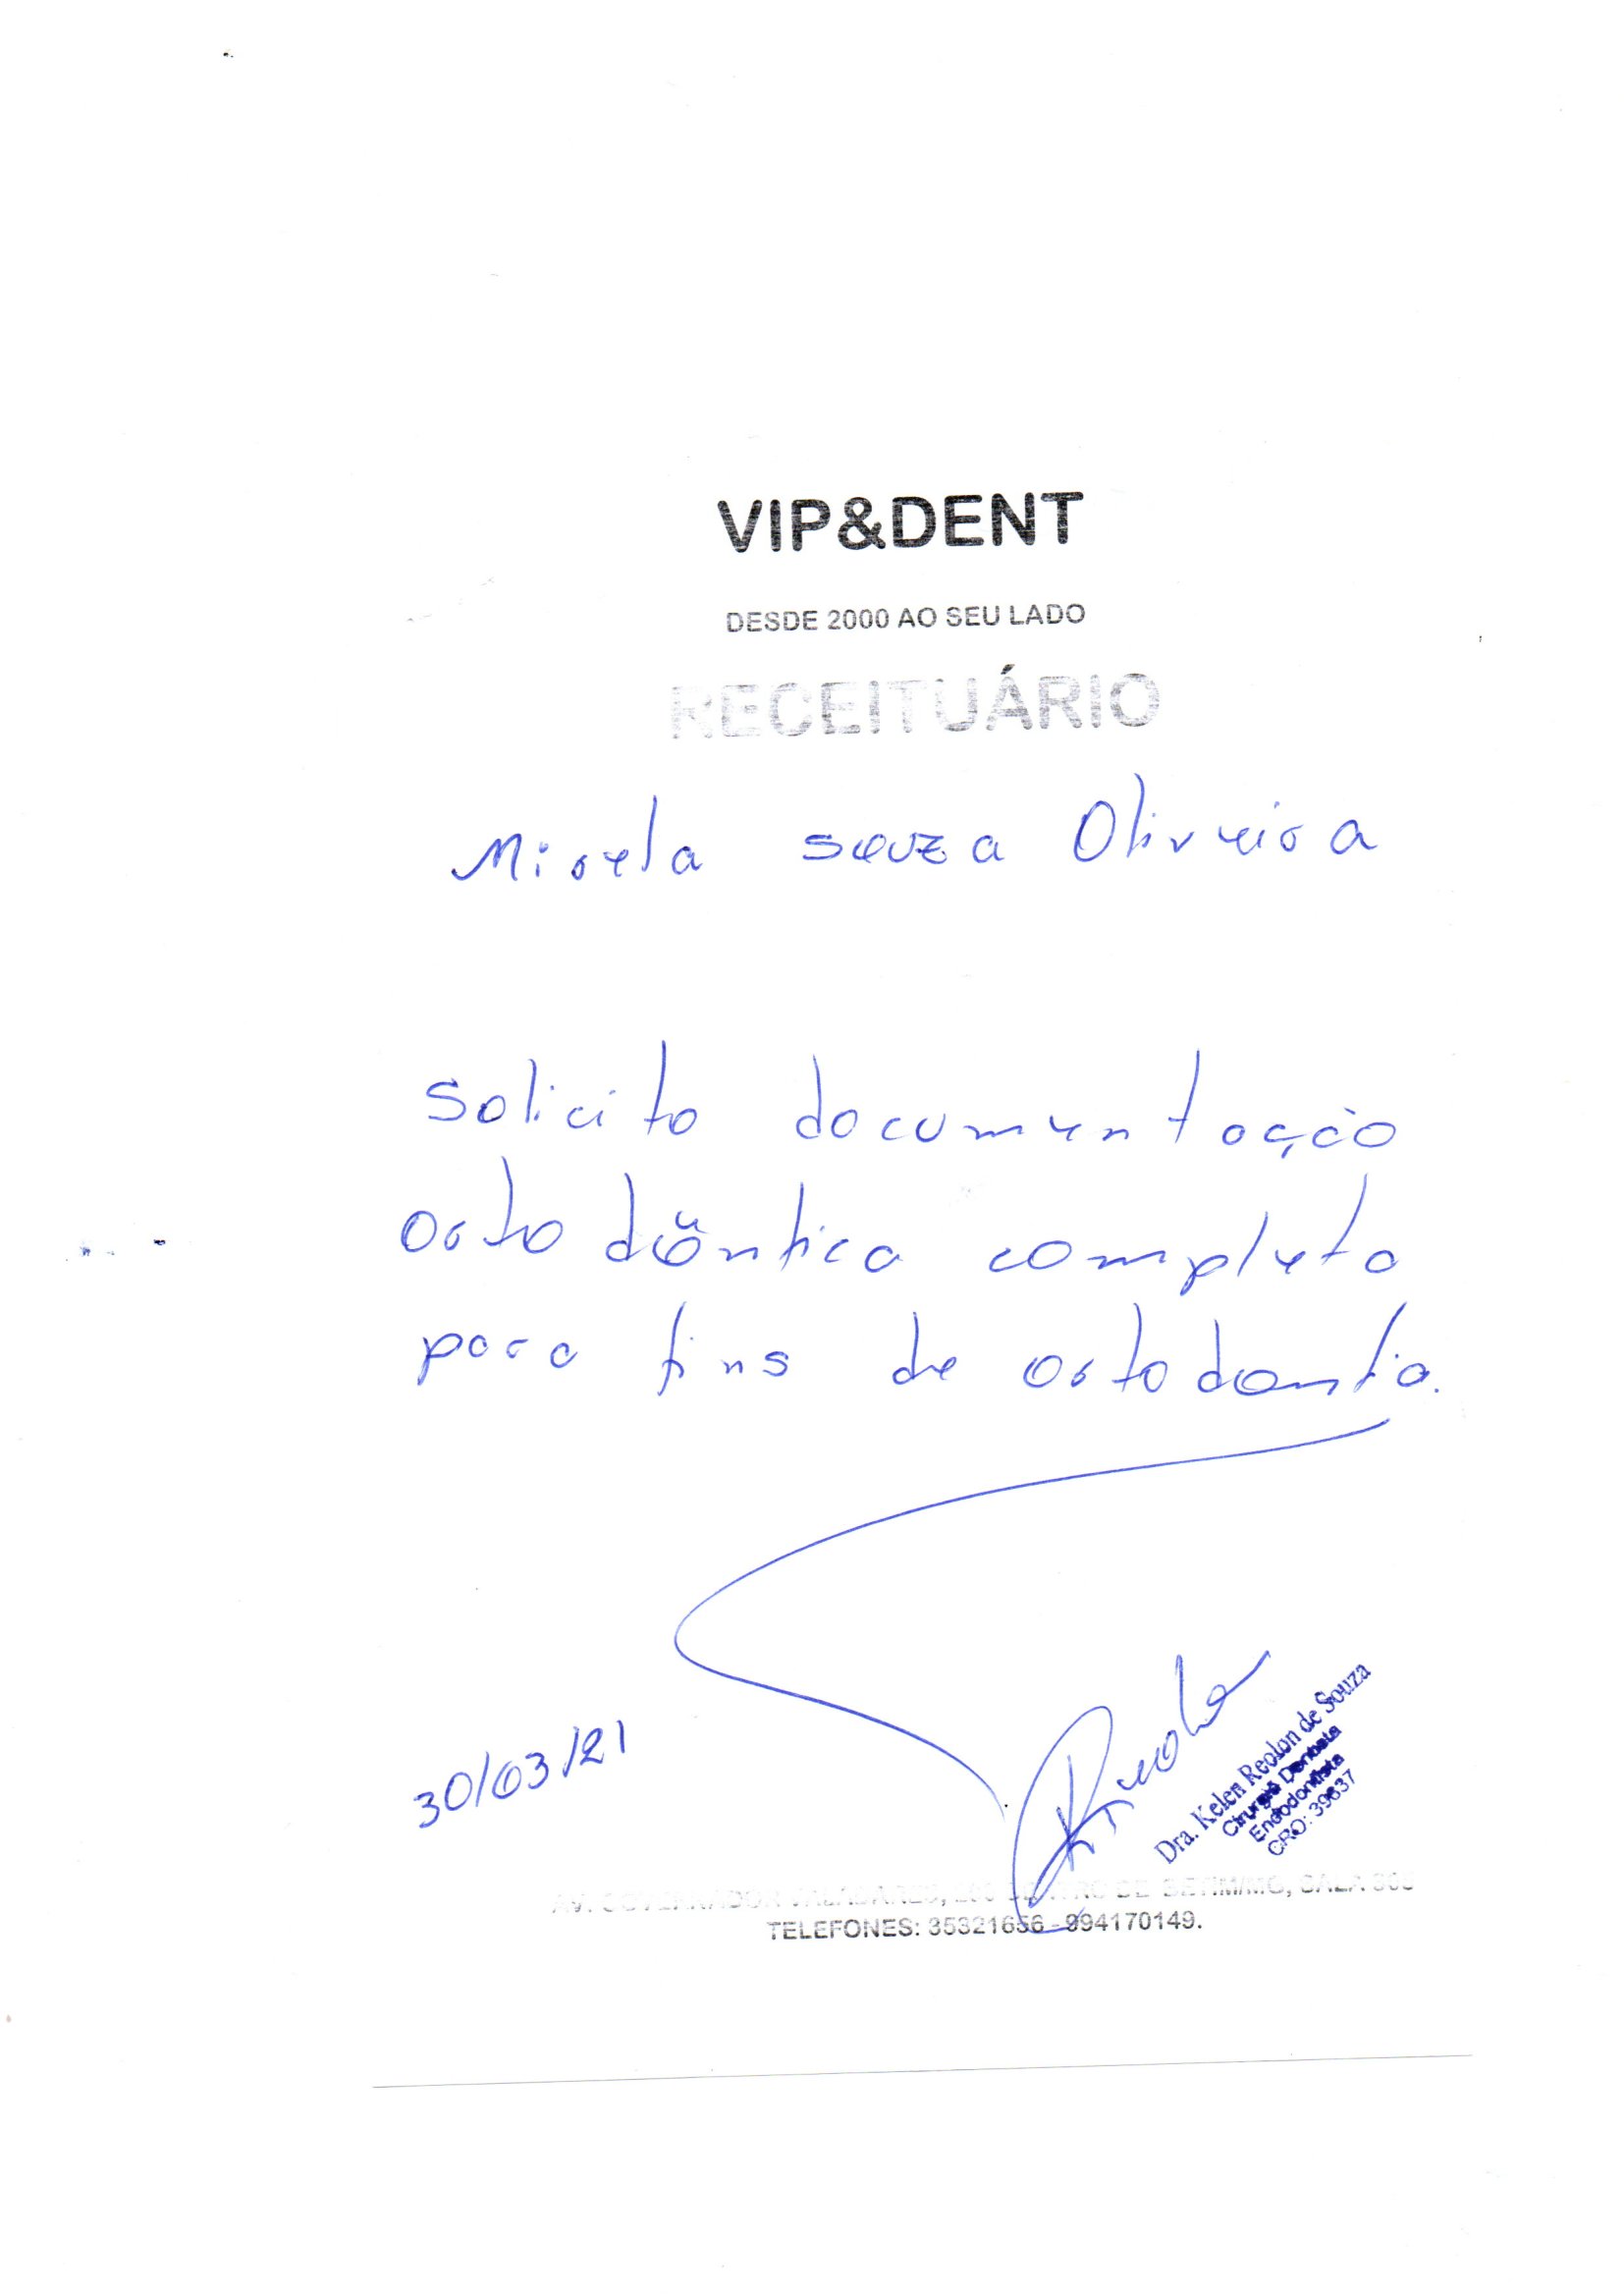 VIP&DENT
DESDE 2000 AO SEU LADO
RECEITUÁRIO
Mirela Souza Oliveira
Solicito documentação
ortodôntica completa
para fins de ortodontia.
30/03/21
Dra. Kelen Reolon de Souza
Cirurgiã Dentista
Endodontista
CRO: 39637
AV. GOVERNADOR VALADARES, CENTRO DE BETIM/MG, SALA
TELEFONES: 35321656 - 994170149.